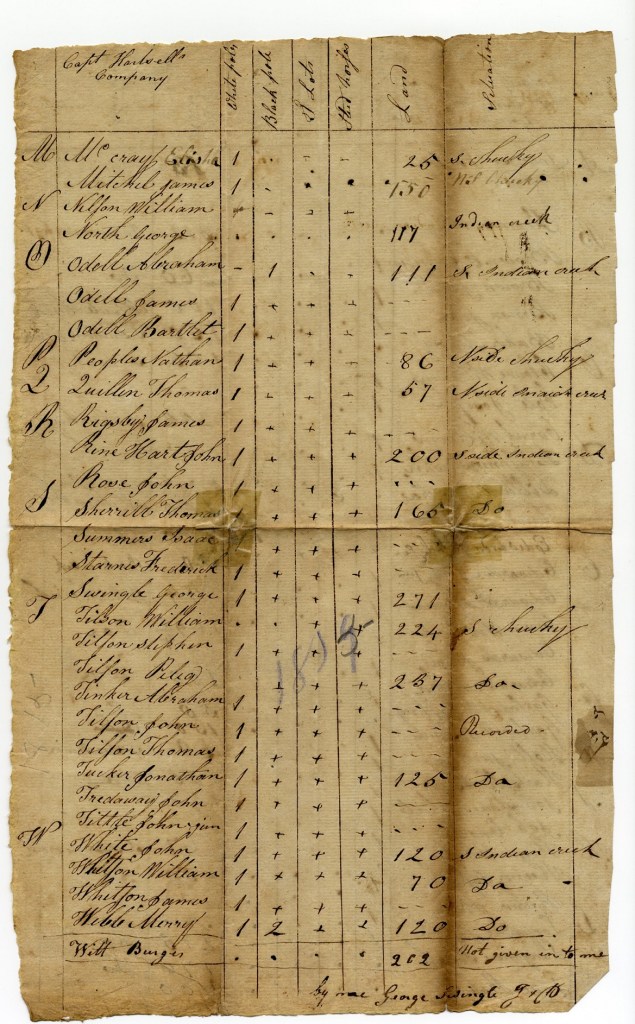 Capt Hartsells Company White pole Black pole T Lots Stud horses Land Situation
M McCray Elisha 1 . - - 25 S Chucky
Mitchel James 1 - . . 150 N S Chucky
N Nelson William - - . .
North George . . . . 117 Indian creek
O Odell Abraham - 1 . . 111 S Indian creek
Odell James 1 + + + - - -
Odell Bartlet 1 + + + - - -
P Peoples Nathan 1 + + - 86 N side Chucky
Q Quillen Thomas 1 + + + 57 N side Indian creek
R Rigsby James 1 + + + - - -
Rine Hart John 1 + + + 200 S side Indian creek
Rose John 1 + + + - - -
S Sherrill Thomas + + + 165 Do
Summers Isaac 1 + + + - - -
Starnes Frederick 1 + + + - - -
Swingle George 1 + + + 271
T Tilson William . . + + 224 S Chucky
Tilson Stephen 1 + + + - - -
Tilson Peleg + + + 237 Do
Tinker Abraham 1 + + + - - -
Tilson John 1 + + + - - - Recorded
Tilson Thomas 1 + + + - - -
Tucker Jonathan 1 + + + 125 Do
Tredaway John 1 + + + - - -
Tittle John jun 1 + + + - - -
W White John 1 + + + 120 S Indian creek
Whitson William 1 + + + 70 Do
Whitson James 1 + + + - - -
Webb Merry 1 2 + + 120 Do
Witt Burges . . . . 202 Not given in to me
by me George Swingle
181